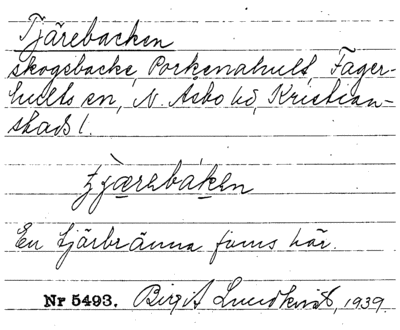 Tjärebacken
skogsbacke, Porkenahult, Fager-
hults sn, N. Åsbo hd, Kristian-
stads l.
En tjärbränna finns här.
Nr 5493. Birgit Lundkvist, 1939.